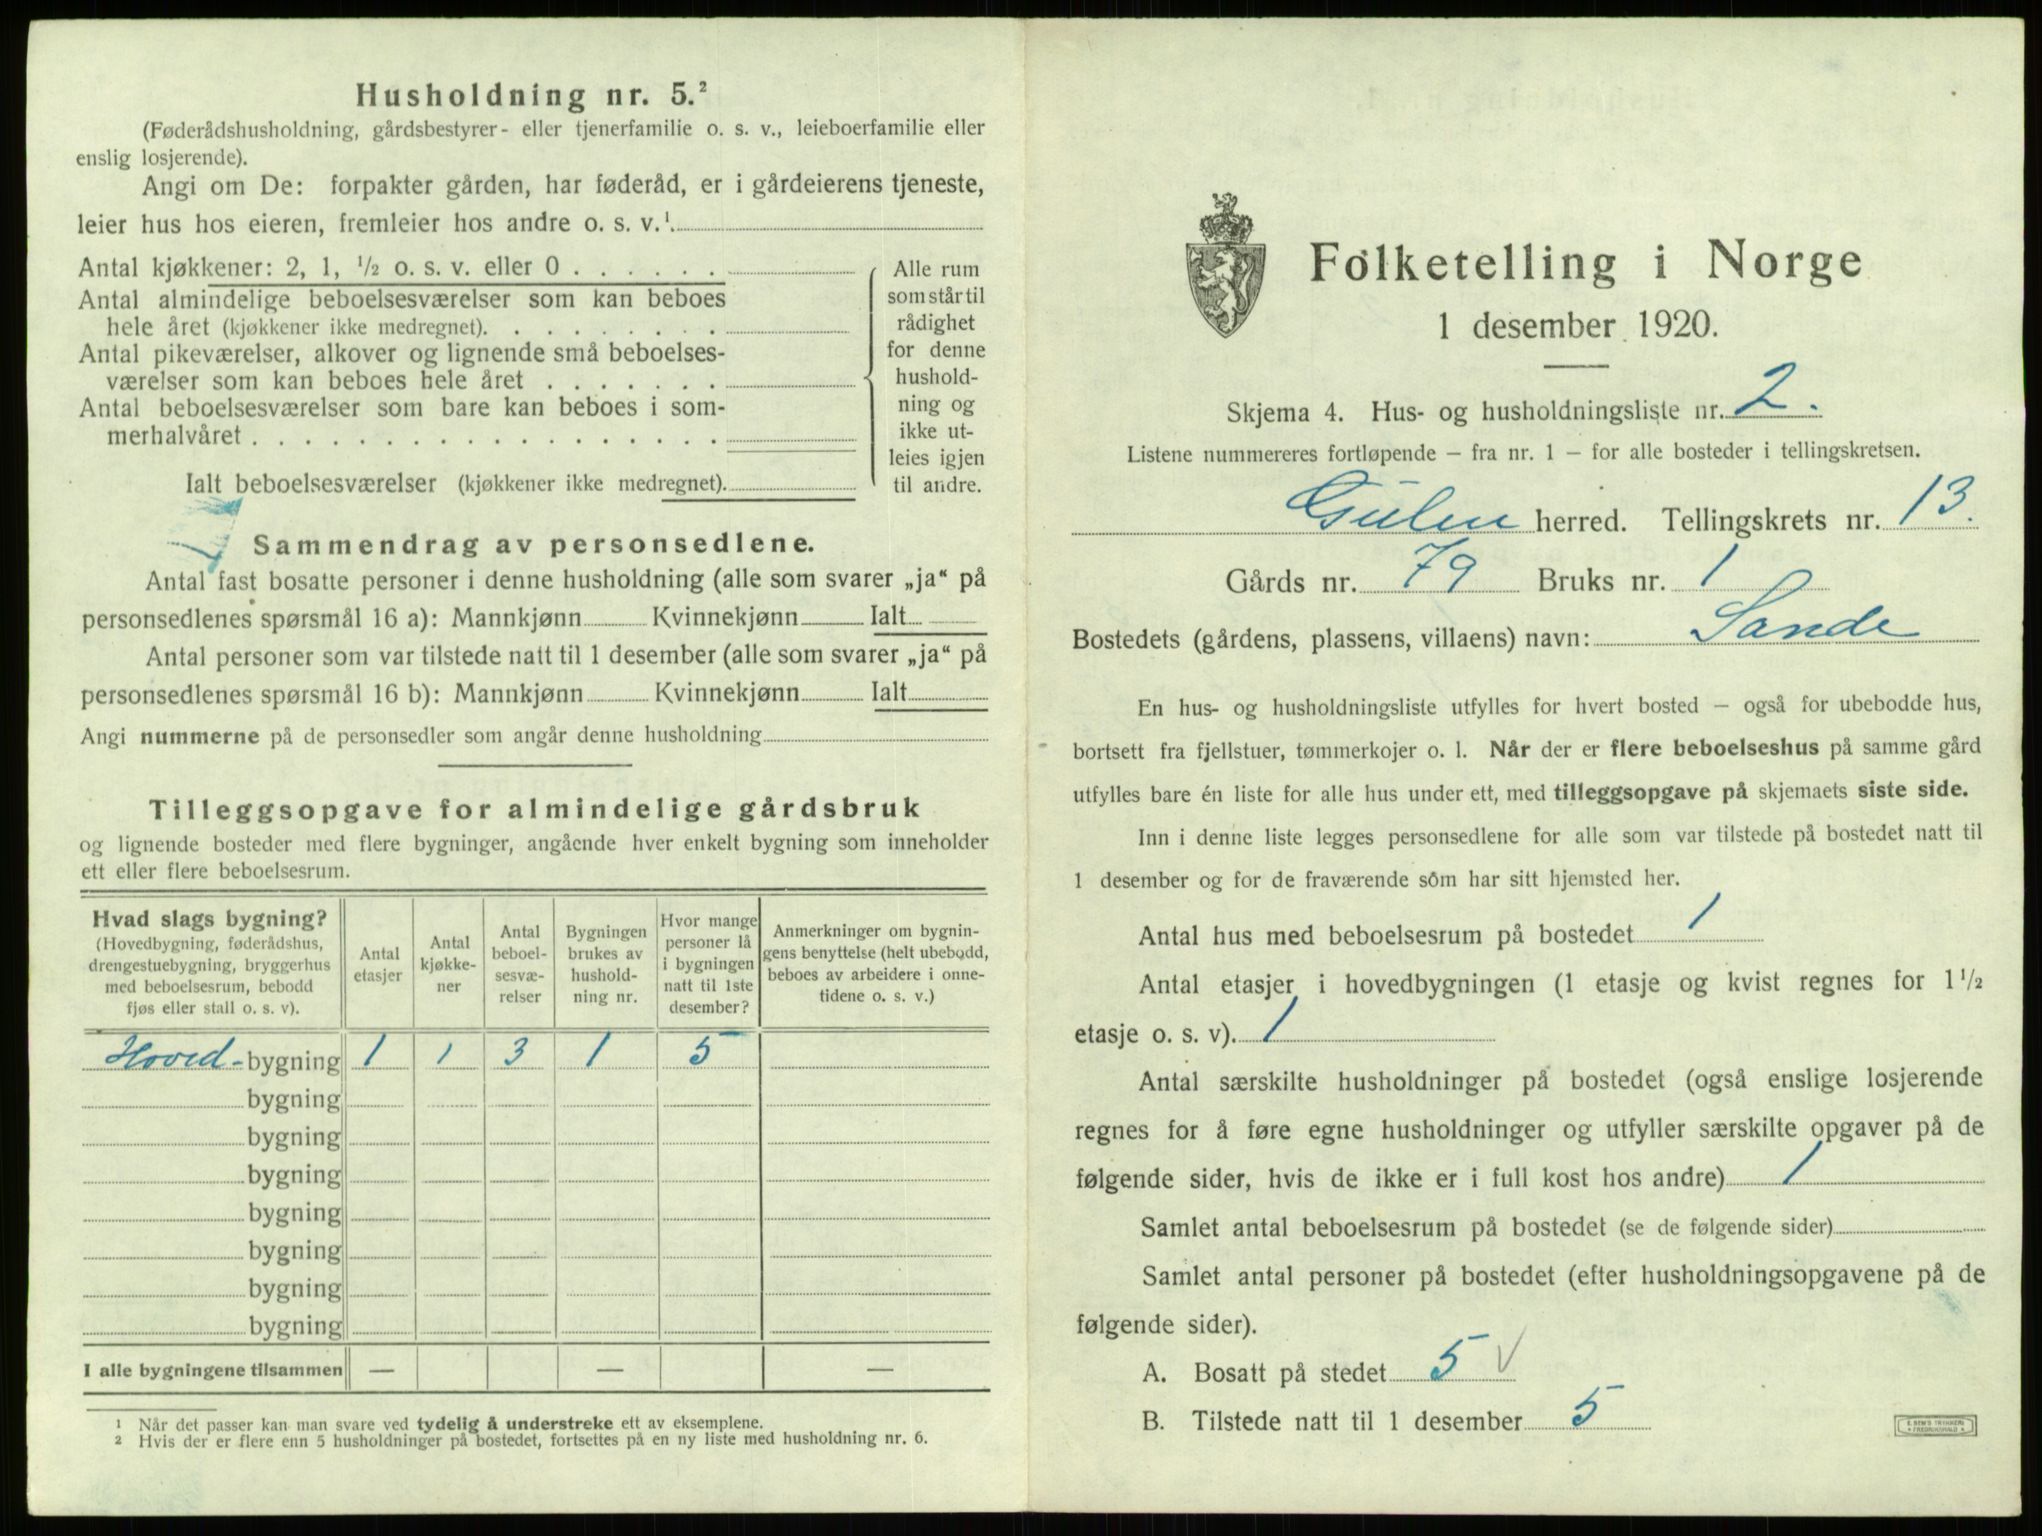 Husholdning nr. 5.²
(Føderådshusholdning, gårdsbestyrer- eller tjenerfamilie o. s. v., leieboerfamilie eller
enslig losjerende).
Angi om De: forpakter gården, har føderåd, er i gårdeierens tjeneste,
leier hus hos eieren, fremleier hos andre o. s. v.¹
Antal kjøkkener: 2, 1, ½ o. s. v. eller 0 . . . . . .
Antal almindelige beboelsesværelser som kan beboes
hele året (kjøkkener ikke medregnet). . . . . . . . .
Antal pikeværelser, alkover og lignende små beboelses-
værelser som kan beboes hele året . . . . . . .
Antal beboelsesværelser som bare kan beboes i som-
merhalvåret . . . . . . . . . . . . . . . . . .
Ialt beboelsesværelser (kjøkkener ikke medregnet).
Alle rum
som står til
rådighet
for denne
hushold-
ning og
ikke ut-
leies igjen
til andre.
Sammendrag av personsedlene.
Antal fast bosatte personer i denne husholdning (alle som svarer „ja“ på
personsedlenes spørsmål 16 a): Mannkjønn Kvinnekjønn Ialt
Antal personer som var tilstede natt til 1 desember (alle som svarer „ja“ på
personsedlenes spørsmål 16 b): Mannkjønn Kvinnekjønn Ialt
Angi nummerne på de personsedler som angår denne husholdning
Tilleggsopgave for almindelige gårdsbruk
og lignende bosteder med flere bygninger, angående hver enkelt bygning som inneholder
ett eller flere beboelsesrum.
Hvad slags bygning?
(Hovedbygning, føderådshus,
drengestuebygning, bryggerhus
med beboelsesrum, bebodd
fjøs eller stall o. s. v).
Antal
etasjer
Antal
kjøkke-
ner
Antal
beboel-
sesvæ-
relser
Bygningen
brukes av
hushold-
ning nr.
Hvor mange
personer lå
i bygningen
natt til 1ste
desember?
Anmerkninger om bygnin-
gens benyttelse (helt ubebodd,
beboes av arbeidere i onne-
tidene o. s. v.)
Hoved-bygning 1 1 3 1 5
bygning
bygning
bygning
bygning
bygning
bygning
bygning
I alle bygningene tilsammen — — —
¹ Når det passer kan man svare ved tydelig å understreke ett av eksemplene.
² Hvis der er flere enn 5 husholdninger på bostedet, fortsettes på en ny liste med husholdning nr. 6.
Folketelling i Norge
1 desember 1920.
Skjema 4. Hus- og husholdningsliste nr. 2.
Listene nummereres fortløpende – fra nr. 1 – for alle bosteder i tellingskretsen.
Gulen herred. Tellingskrets nr. 13.
Gårds nr. 79 Bruks nr. 1
Bostedets (gårdens, plassens, villaens) navn: Sande
En hus- og husholdningsliste utfylles for hvert bosted – også for ubebodde hus,
bortsett fra fjellstuer, tømmerkojer o. l. Når der er flere beboelseshus på samme gård
utfylles bare én liste for alle hus under ett, med tilleggsopgave på skjemaets siste side.
Inn i denne liste legges personsedlene for alle som var tilstede på bostedet natt til
1 desember og for de fraværende som har sitt hjemsted her.
Antal hus med beboelsesrum på bostedet 1
Antal etasjer i hovedbygningen (1 etasje og kvist regnes for 1½
etasje o. s. v). 1
Antal særskilte husholdninger på bostedet (også enslige losjerende
regnes for å føre egne husholdninger og utfyller særskilte opgaver på de
følgende sider, hvis de ikke er i full kost hos andre) 1
Samlet antal beboelsesrum på bostedet (se de følgende sider)
Samlet antal personer på bostedet (efter husholdningsopgavene på de
følgende sider).
A. Bosatt på stedet 5 √
B. Tilstede natt til 1 desember 5